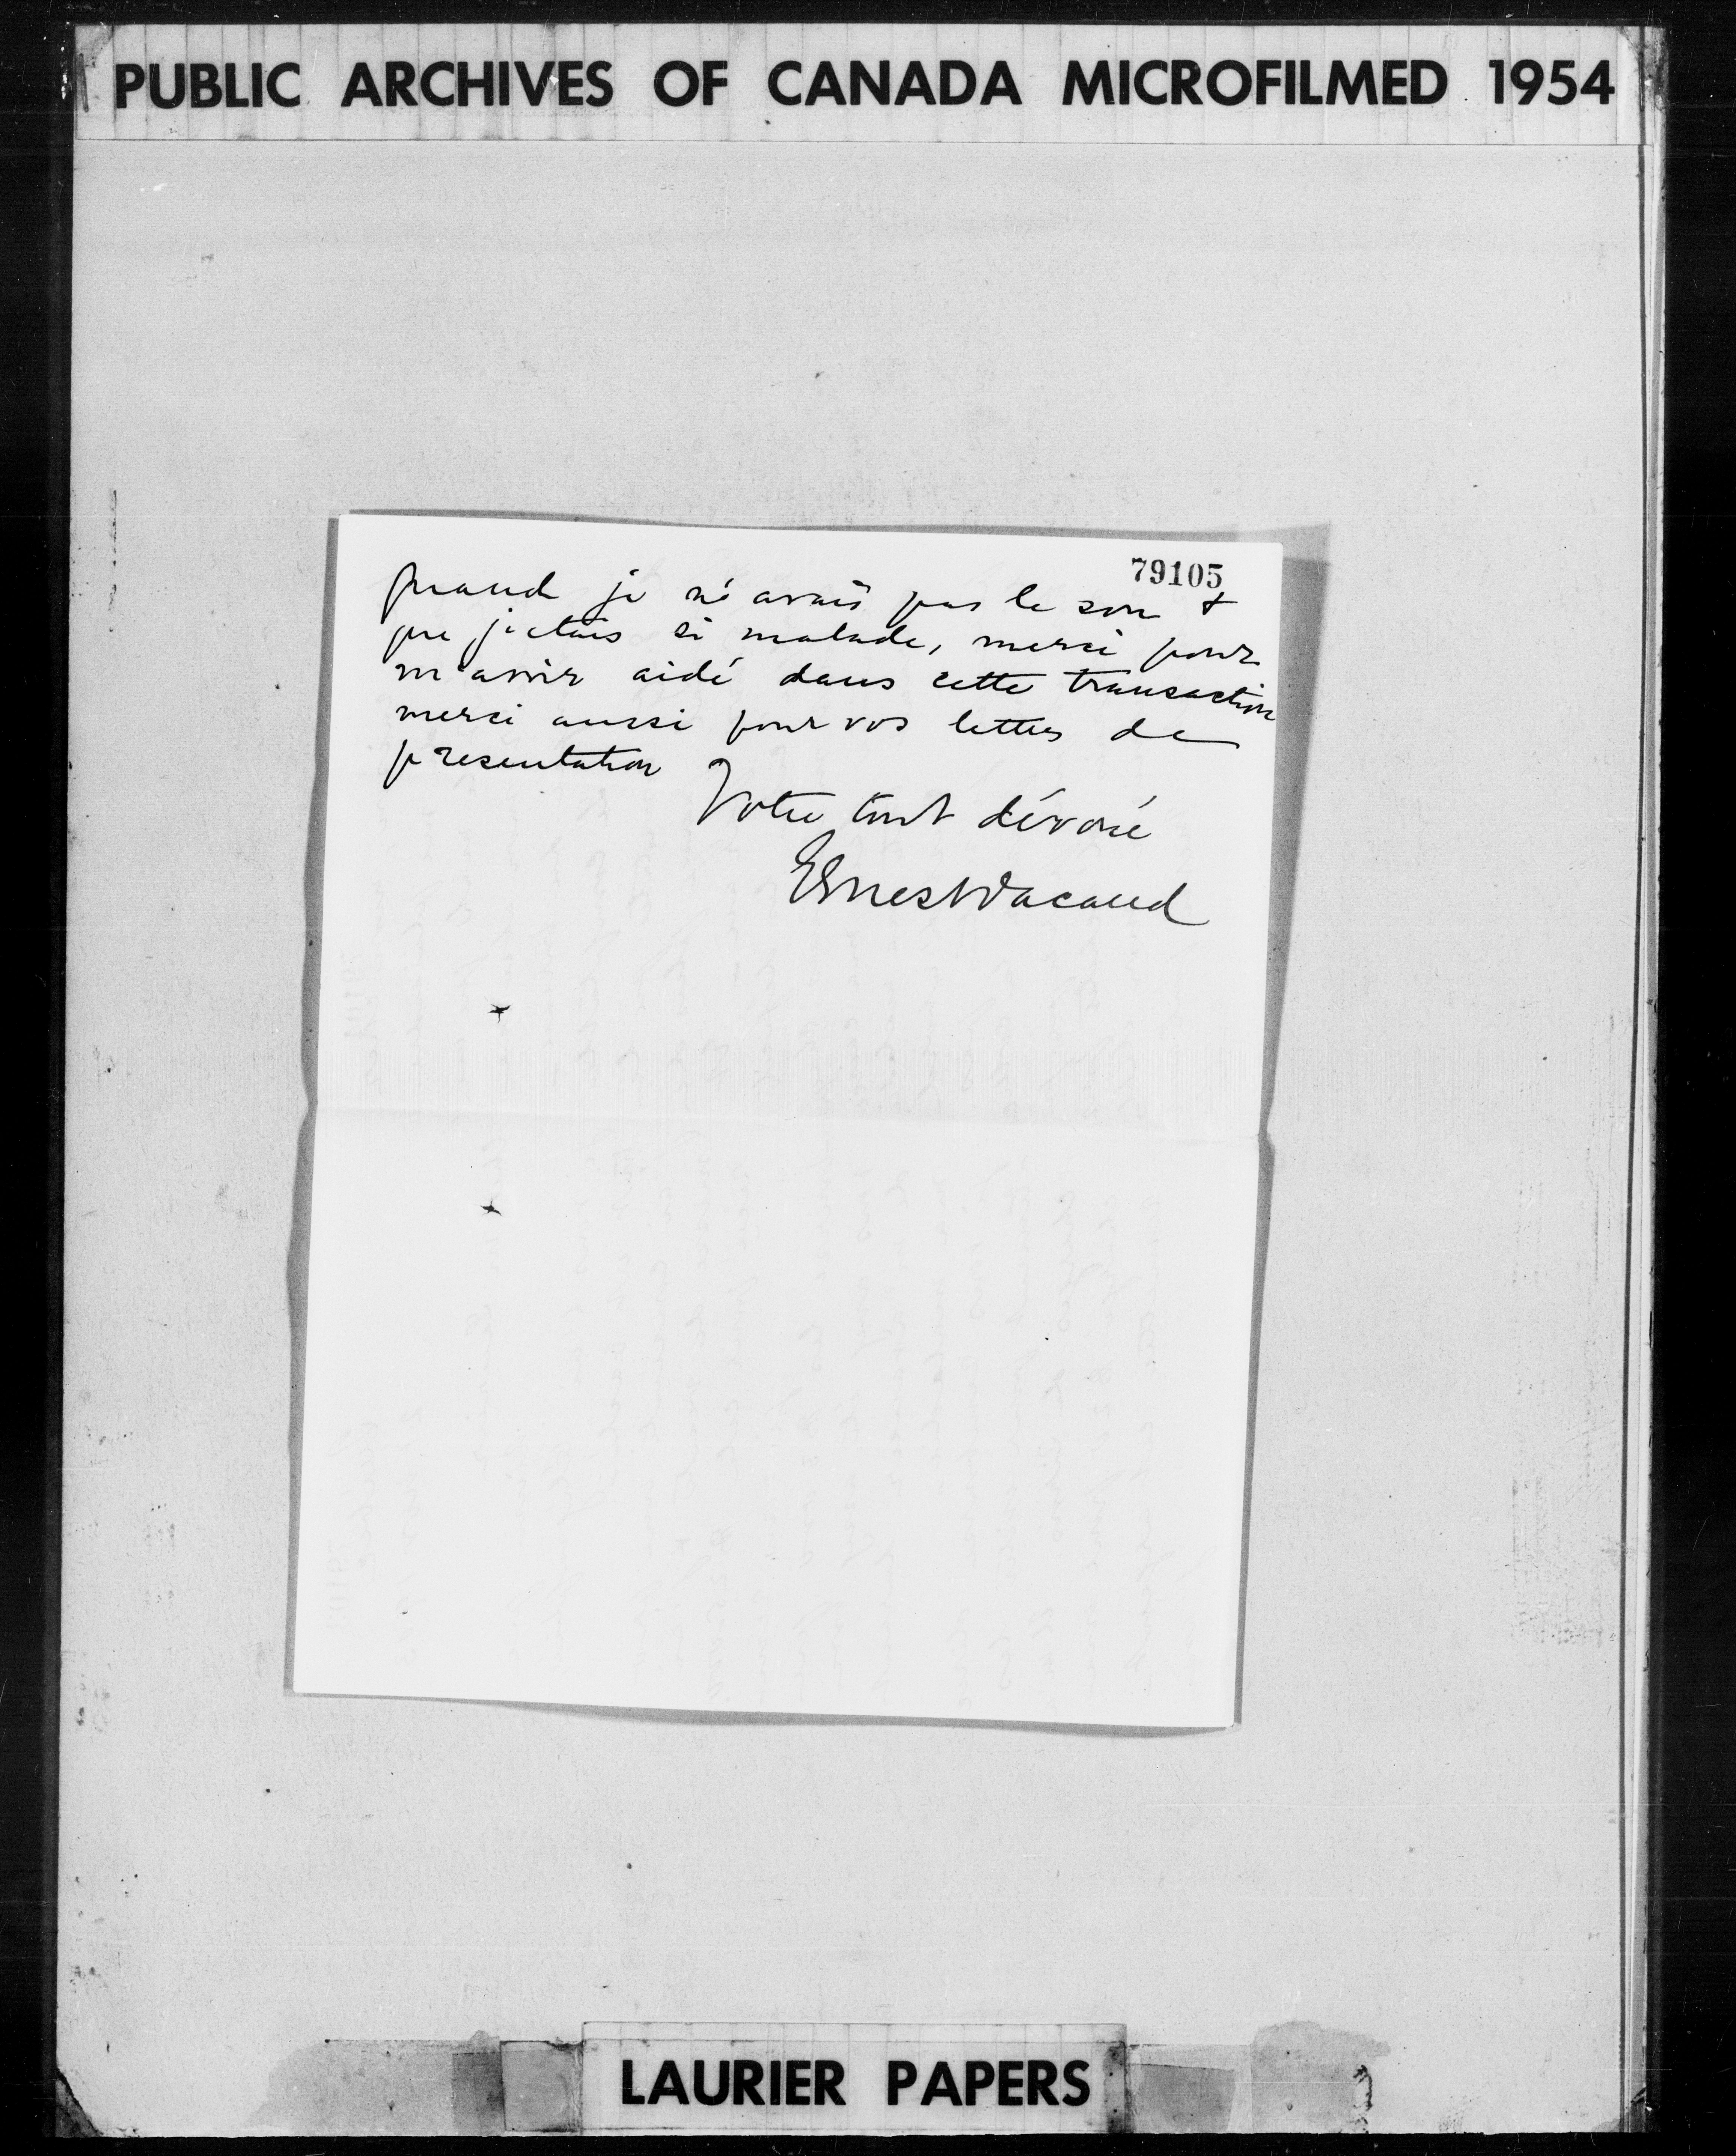 PUBLIC ARCHIVES OF CANADA MICROFILMED 1954
79105
quand je n'avais pas le sou &
que j'etais si malade, merci pour
m'avoir aidé dans cette transaction
merci aussi pour vos lettres de
presentation
Votre tout dévoué
Ernest Pacaud
LAURIER PAPERS